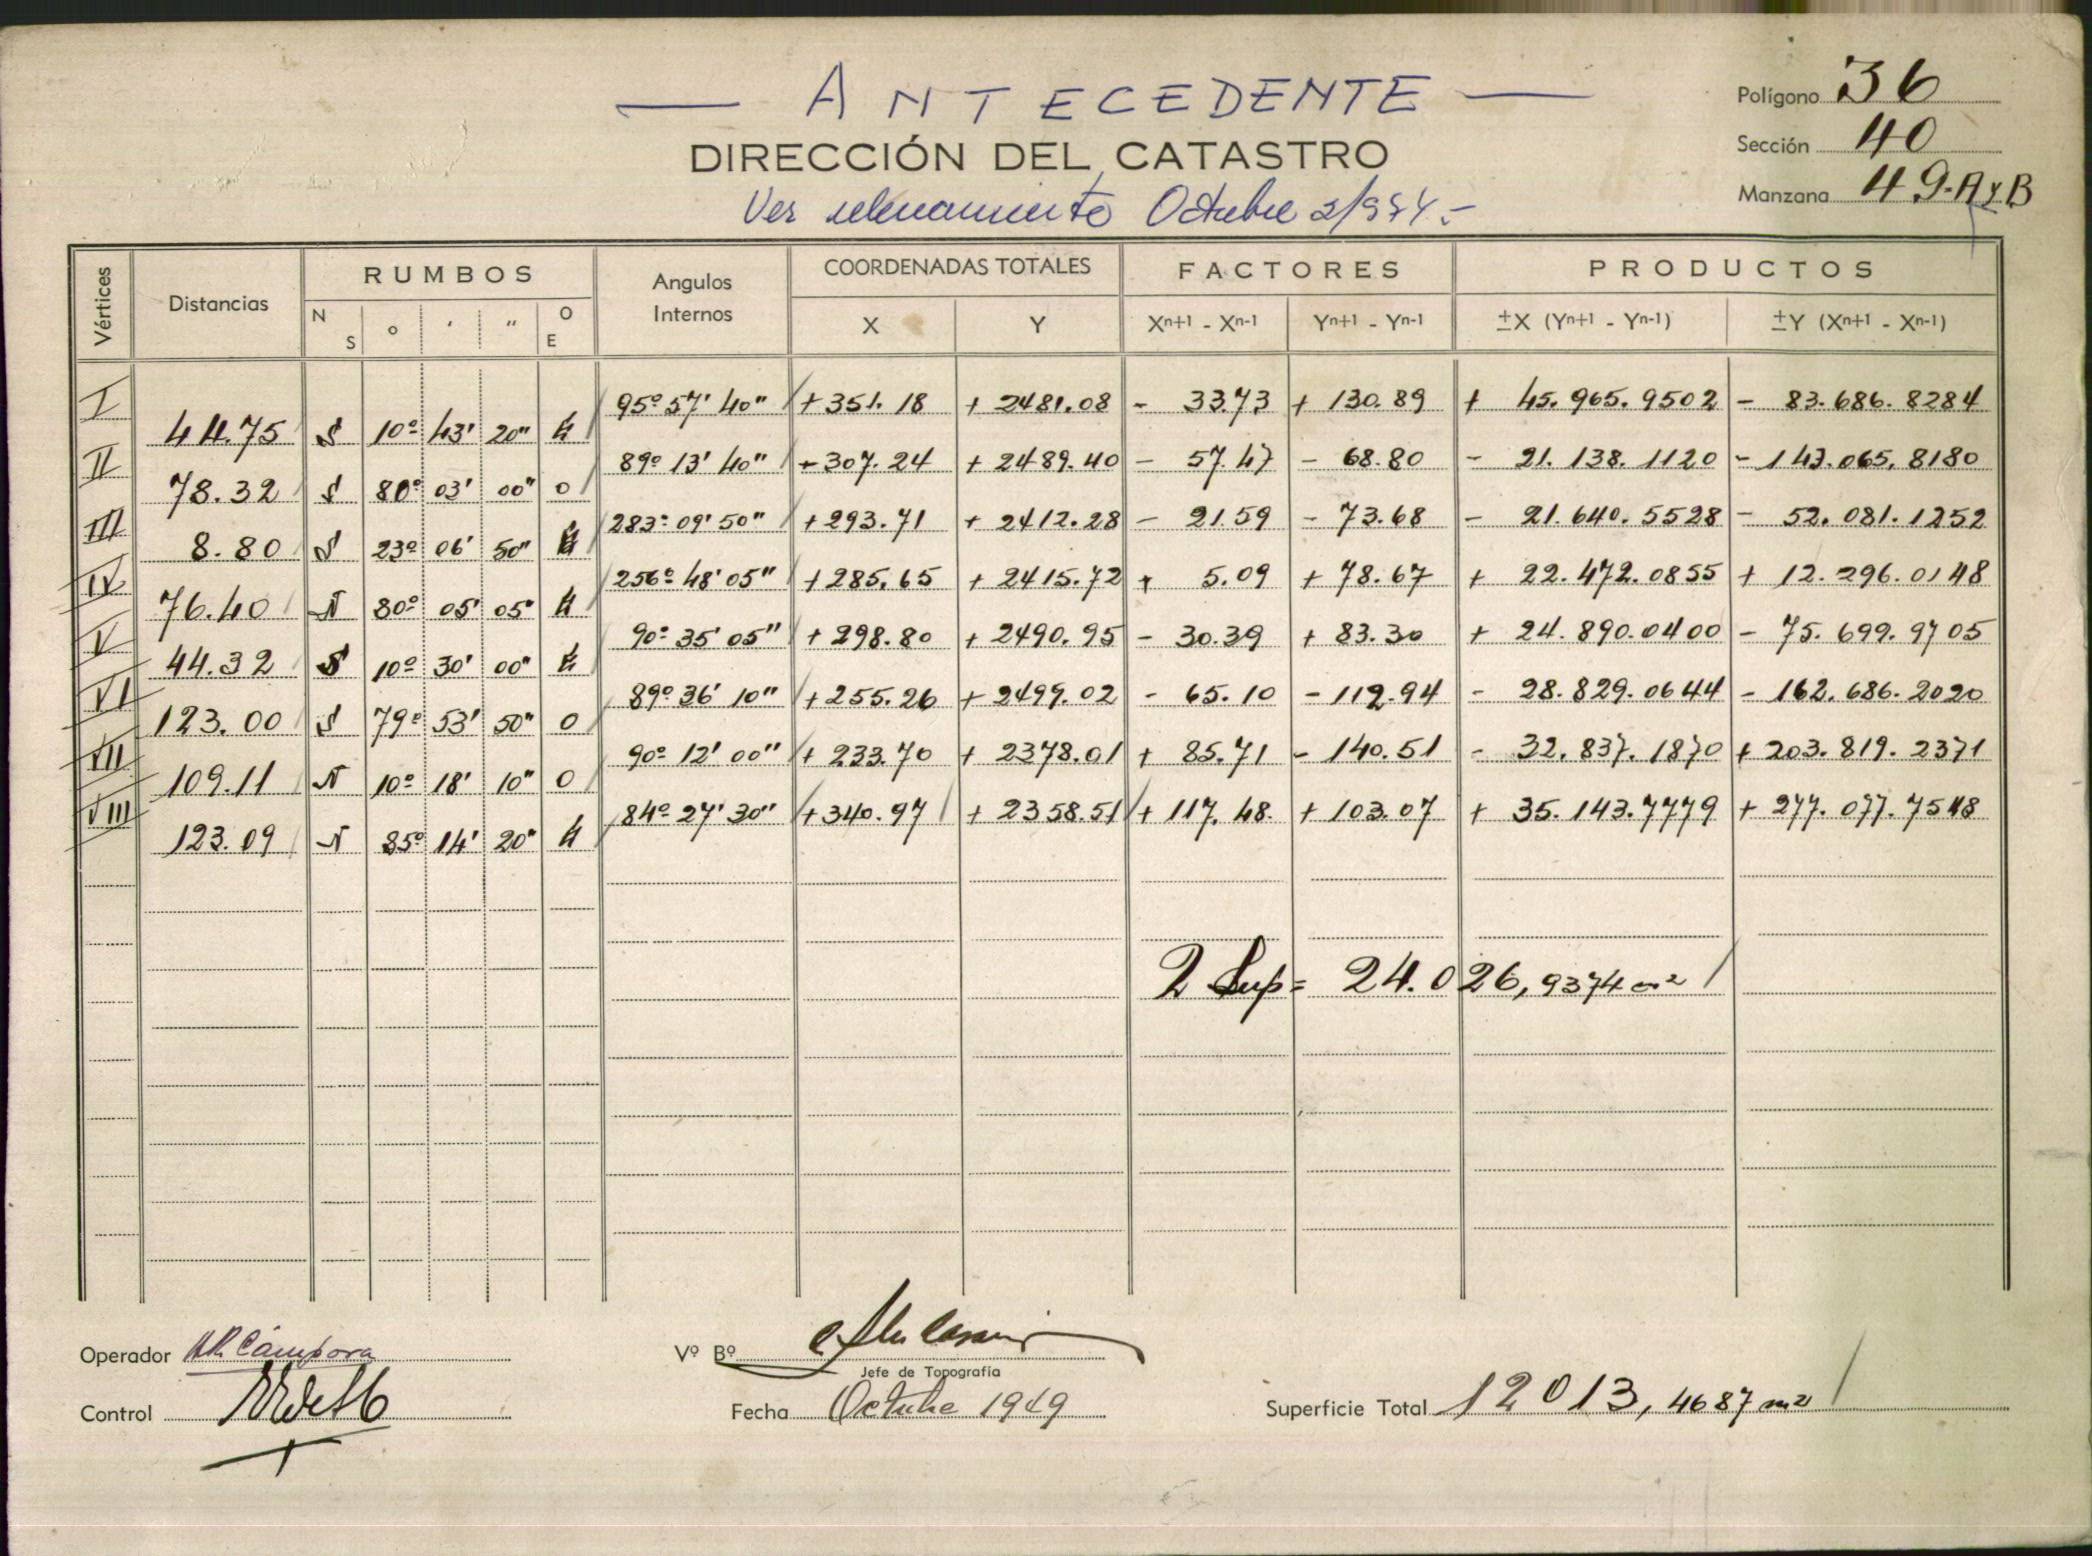 — ANTECEDENTE —
DIRECCIÓN DEL CATASTRO
Ver relevamiento Octubre 2/974.-
Polígono 36
Sección 40
Manzana 49-A y B
Vértices
Distancias
RUMBOS
N S ° ' " O E
Angulos Internos
COORDENADAS TOTALES
X Y
FACTORES
Xn+1 - Xn-1 Yn+1 - Yn-1
PRODUCTOS
±X (Yn+1 - Yn-1) ±Y (Xn+1 - Xn-1)
I 95° 57' 40" +351.18 +2481.08 - 33.73 +130.89 + 45.965.9502 - 83.686.8284
44.75 S 10° 43' 20" E
II 89° 13' 40" +307.24 +2489.40 - 57.47 - 68.80 - 21.138.1120 - 143.065.8180
78.32 S 80° 03' 00" O
III 283° 09' 50" +293.71 +2412.28 - 21.59 - 73.68 - 21.640.5528 - 52.081.1252
8.80 S 23° 06' 50" E
IV 256° 48' 05" +285.65 +2415.72 + 5.09 +78.67 + 22.472.0855 + 12.296.0148
76.40 N 80° 05' 05" E
V 90° 35' 05" +298.80 +2490.95 - 30.39 +83.30 + 24.890.0400 - 75.699.9705
44.32 S 10° 30' 00" E
VI 89° 36' 10" +255.26 +2499.02 - 65.10 -112.94 - 28.829.0644 - 162.686.2020
123.00 S 79° 53' 50" O
VII 90° 12' 00" +233.70 +2378.01 + 85.71 - 140.51 - 32.837.1870 +203.819.2371
109.11 N 10° 18' 10" O
VIII 84° 27' 30" +340.97 +2358.51 +117.48 +103.07 + 35.143.7779 +277.077.7548
123.09 N 85° 14' 20" E
2 Sup = 24.026,9374 m²
Operador HR Cámpora
Vº Bº
Jefe de Topografía
Control
Fecha Octubre 1949
Superficie Total 12013,4687 m²